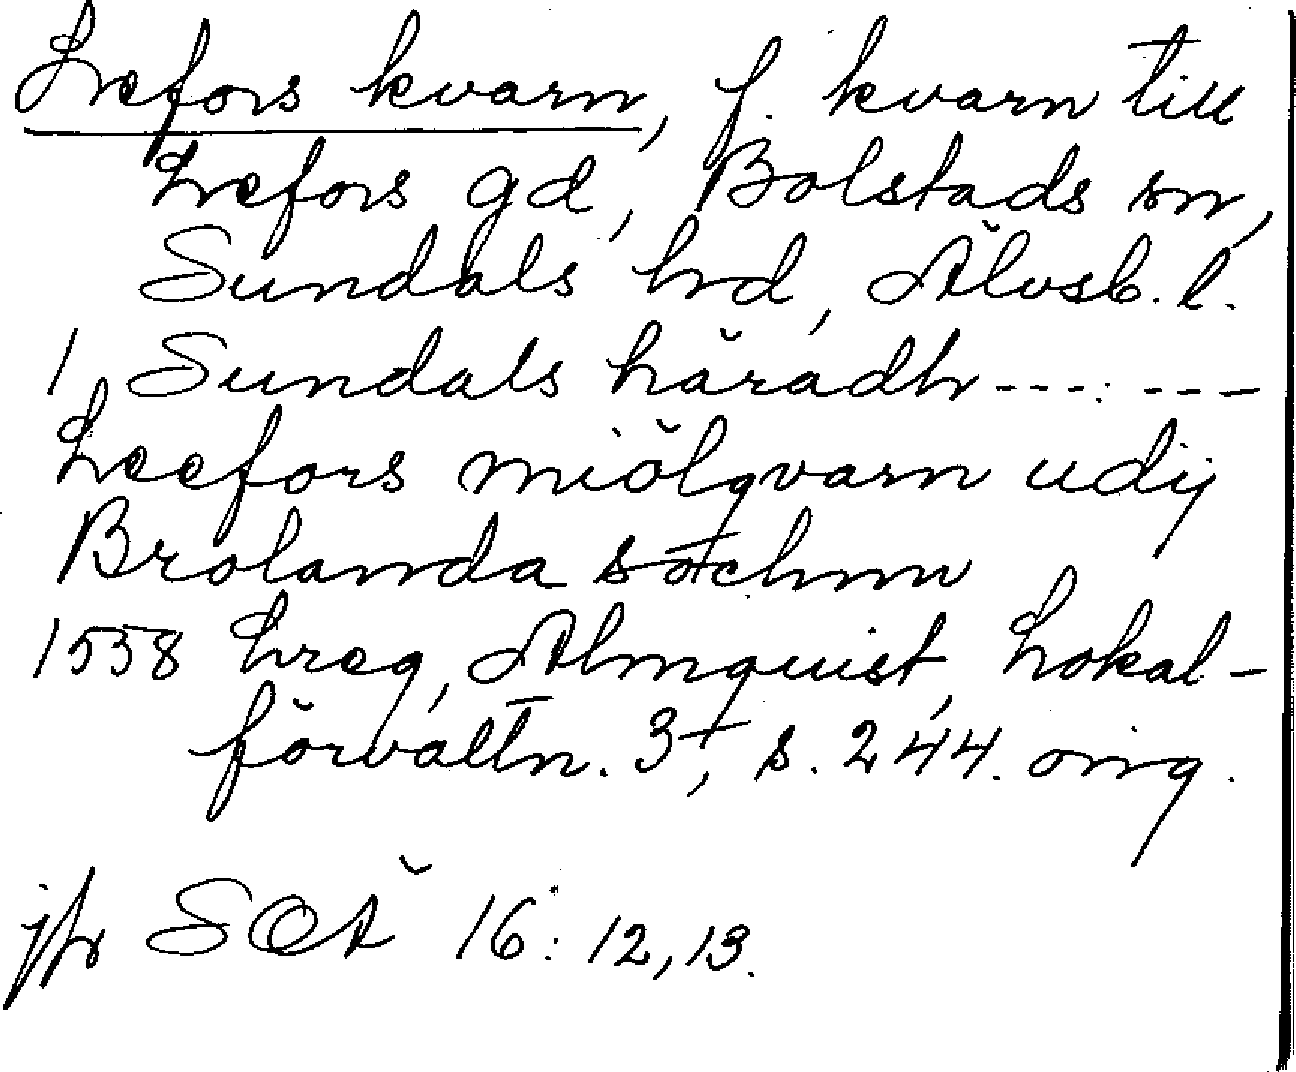 Leefors kvarn, f. kvarn till
Leefors gd, Bolstads sn,
Sundals hd, Älvsb. l.
1 Sundals häradh---:---
Leefors miölqvarn udij
Brolanda sochnn
1558 Lreg, Almquist, Lokal-
förvaltn. 3, s. 244. orig.
jfr SOÄ 16: 12, 13.